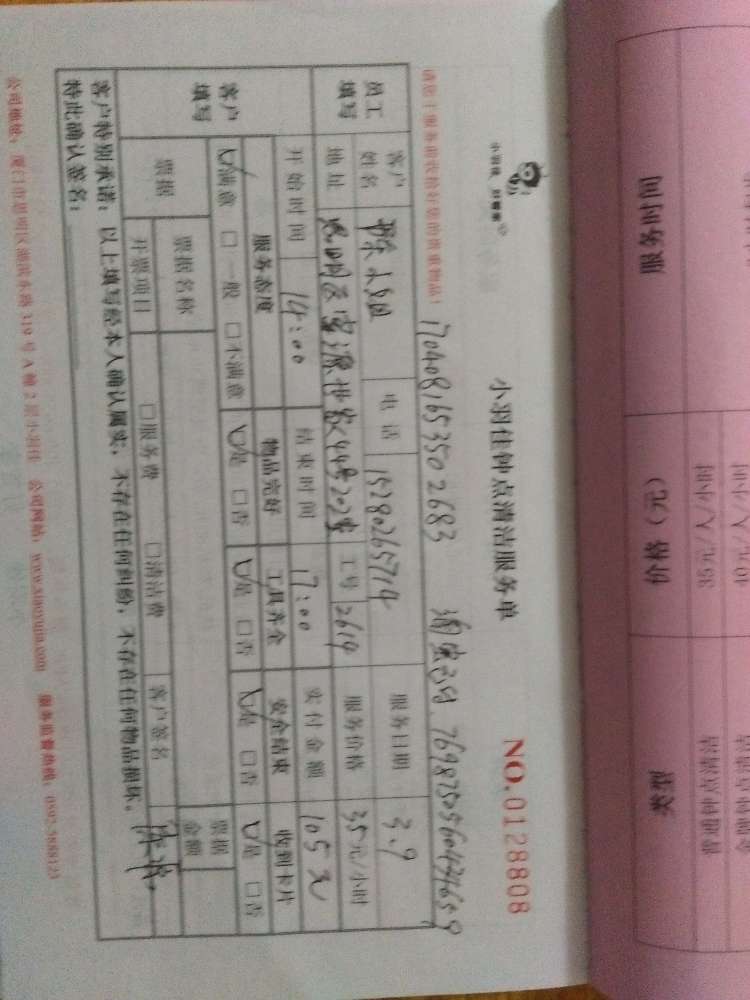 小羽佳 好管家
小羽佳钟点清洁服务单
NO.0128808
1704081653502683
请您于服务前收拾好您的贵重物品！
员工填写
客户姓名 小姐 电话 15280265719 服务日期 3.9
地址 思明区 工号 2619 服务价格 35元/小时
开始时间 14:00 结束时间 17:00 实付金额 105元
客户填写
服务态度 物品完好 工具齐全 安全结束 收到卡片
☑满意 □一般 □不满意 ☑是 □否 ☑是 □否 ☑是 □否 ☑是 □否
票据 票据名称 票据金额
开票项目 □服务费 □清洁费 客户签名
客户特别承诺：以上填写经本人确认属实，不存在任何纠纷，不存在任何物品损坏。
特此确认签名：
公司地址：厦门市思明区 319号A幢2层小羽佳 公司网站：www.xiaoyujia.com 服务监督热线：0592-5888123
服务时间 价格（元） 类型
35元/人/小时 普通钟点清洁
40元/人/小时 金牌钟点清洁